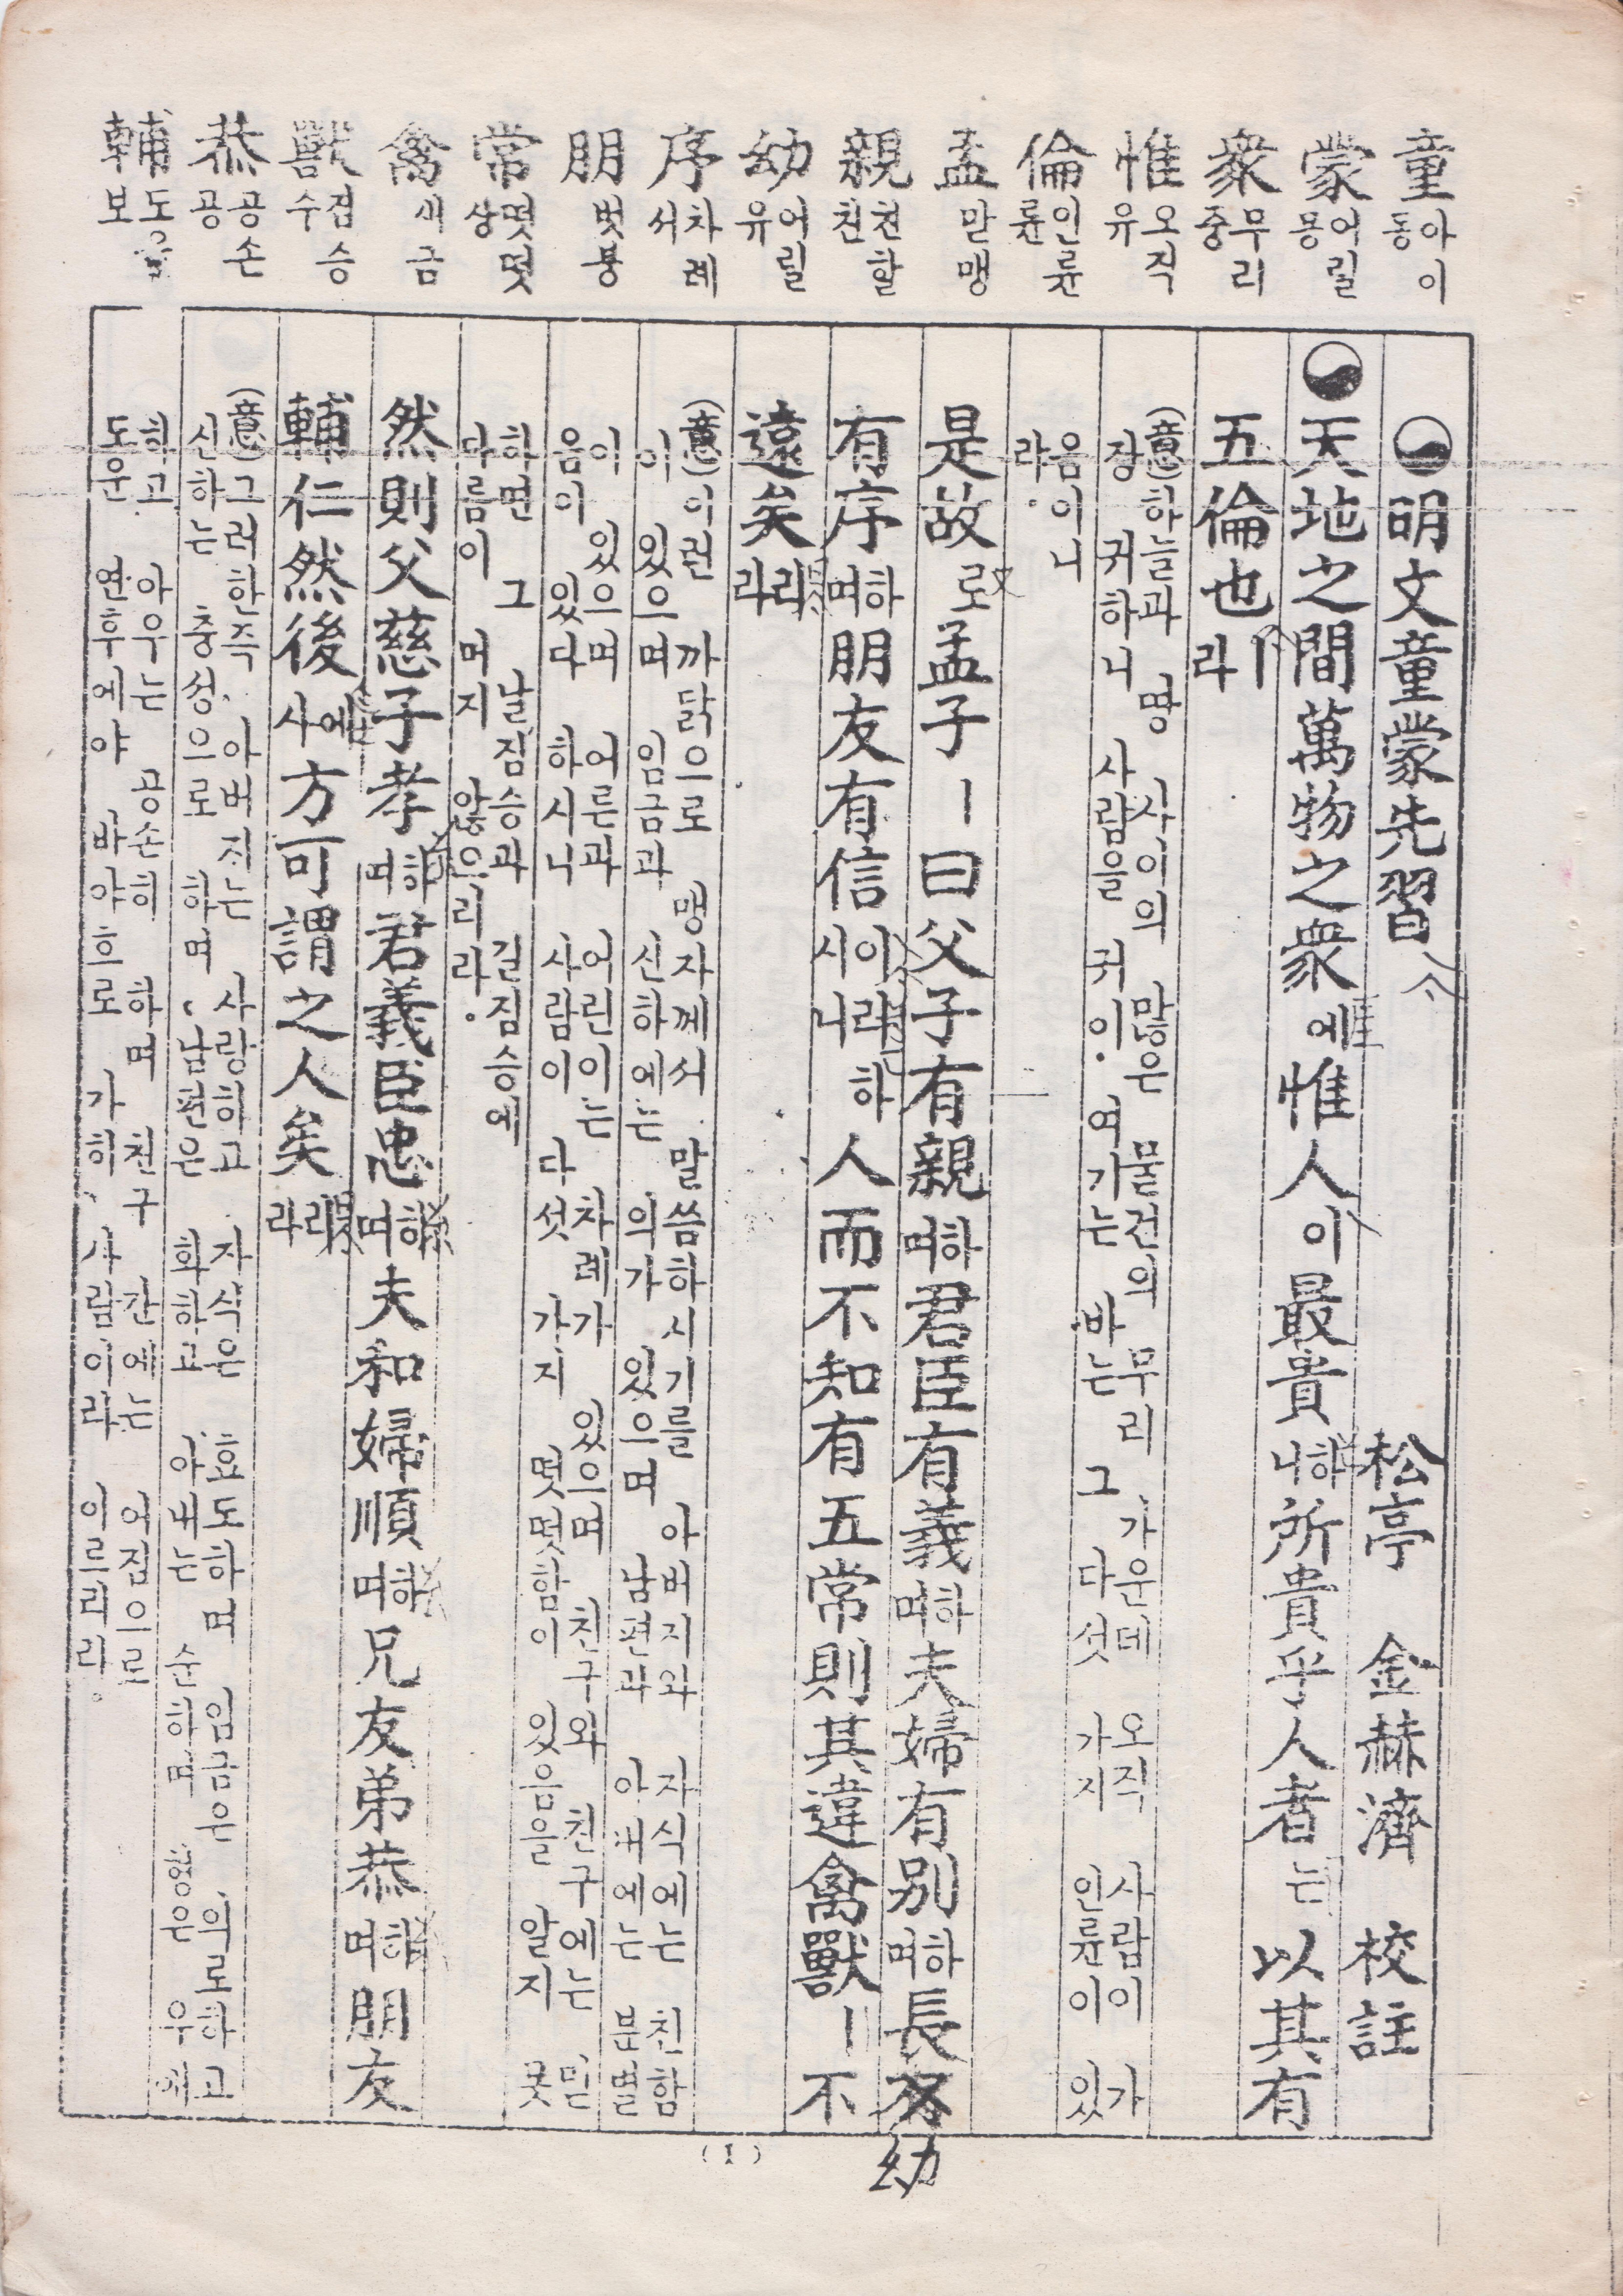 童 아이 동
蒙 어릴 몽
衆 무리 중
惟 오직 유
倫 인륜 륜
孟 맏 맹
親 친할 친
幼 어릴 유
序 차례 서
朋 벗 붕
常 떳떳 상
禽 새 금
獸 짐승 수
恭 공손 공
輔 도울 보
明文童蒙先習 松亭 金赫濟 校註
天地之間萬物之衆에 惟人이 最貴하니 所貴乎人者는 以其有
五倫也ㅣ라
(意) 하늘과 땅 사이의 많은 물건의 무리 가운데 오직 사람이 가
장 귀하니 사람을 귀이 여기는 바는 그 다섯 가지 인륜이 있
음이니
라.
是故로 孟子ㅣ曰父子有親하며 君臣有義하며 夫婦有別하며 長幼
有序하며 朋友有信이라하시니 人而不知有五常則其違禽獸ㅣ不
遠矣리라
(意) 이런 까닭으로 맹자께서 말씀하시기를 아버지와 자식에는 친함
이 있으며 임금과 신하에는 의가 있으며 남편과 아내에는 분별
이 있으며 어른과 어린이는 차례가 있으며 친구와 친구에는 믿
음이 있다 하시니 사람이 다섯 가지 떳떳함이 있음을 알지 못
하면 그 날짐승과 길짐승에
다름이 머지 않으리라.
然則父慈子孝하며 君義臣忠하며 夫和婦順하며 兄友弟恭하며 朋友
輔仁然後에사 方可謂之人矣리라
(意) 그러한즉 아버지는 사랑하고 자식은 효도하며 임금은 의로하고
신하는 충성으로 하며 남편은 화하고 아내는 순하며 형은 우애
하고 아우는 공손히 하며 친구간에는 어짐으로
도운 연후에야 바야흐로 가히 사람이라 이르리라.
(1)